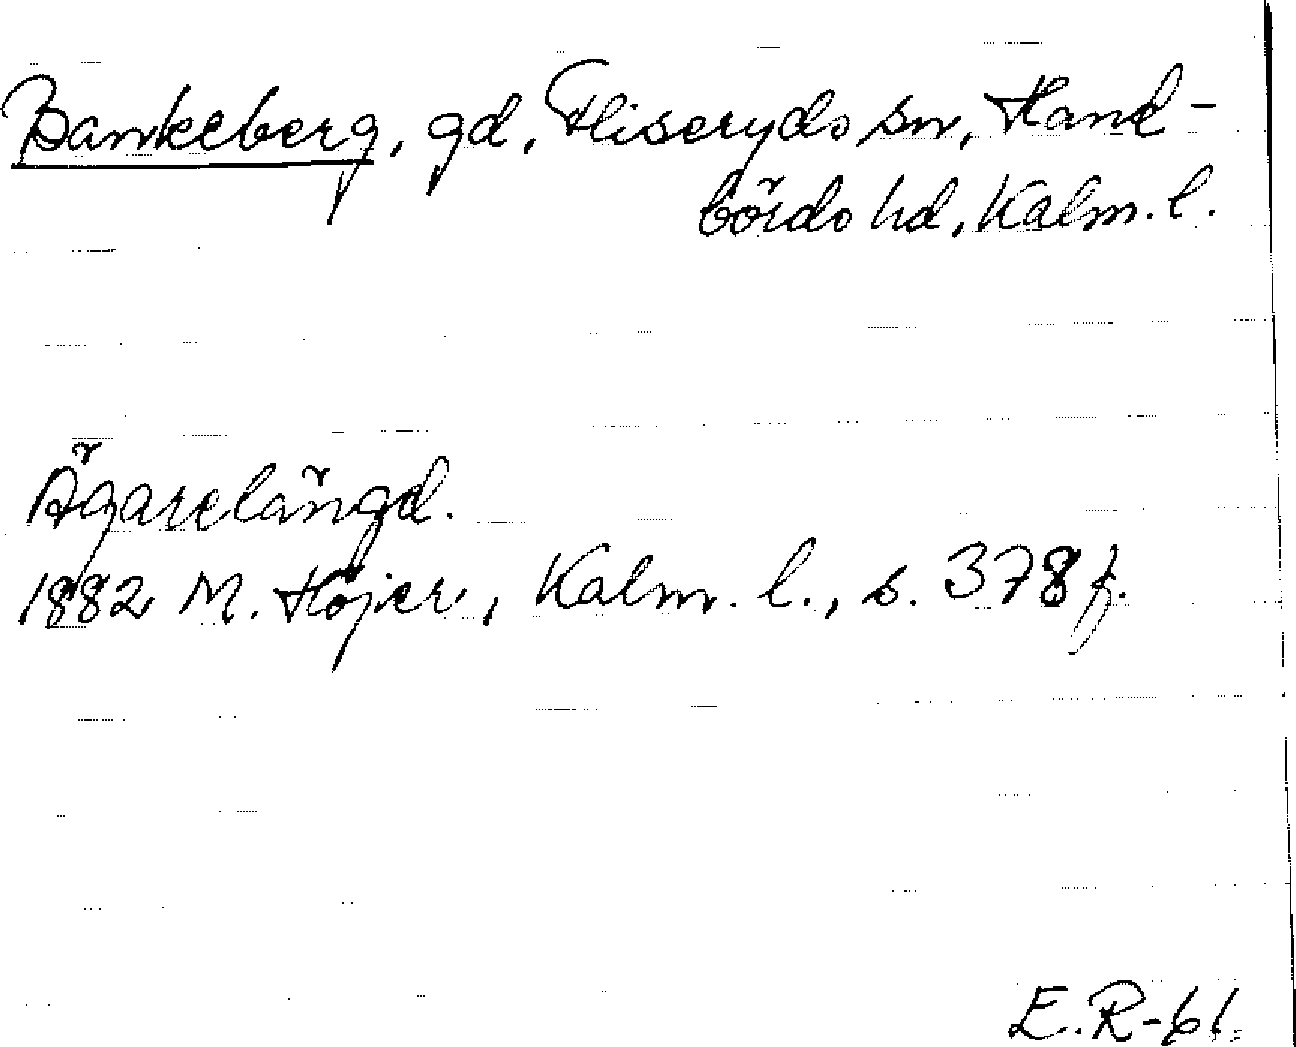 Bankeberg, gd, Fliseryds sn, Hand-
börds hd, Kalm. l.
Ägarelängd.
1882 M. Höjer, Kalm. l., s. 378 f.
E.R-61